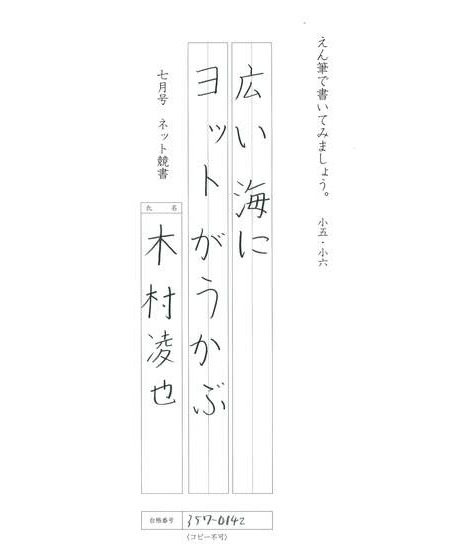 えん筆で書いてみましょう。 小五・小六
広い海に
ヨットがうかぶ
七月号 ネット競書
氏名
木村凌也
台帳番号 357-0142
(コピー不可)